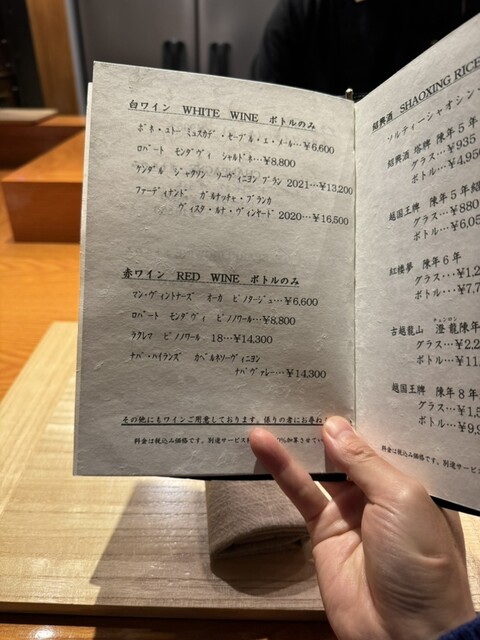 白ワイン WHITE WINE ボトルのみ
ボネ・ユトー ミュスカデ・セーブル・エ・メール…￥6,600
ロバート モンダヴィ シャルドネ…￥8,800
ケンダル ジャクソン ソーヴィニヨン ブラン 2021…￥13,200
ファーディナンド ガルナッチャ・ブランカ
ヴィスタ・ルナ・ヴィンヤード 2020…￥16,500
赤ワイン RED WINE ボトルのみ
マン・ヴィントナーズ オーカ ピノタージュ…￥6,600
ロバート モンダヴィ ピノノワール…￥8,800
ラクレマ ピノノワール 18…￥14,300
ナパ・ハイランズ カベルネソーヴィニヨン
ナパヴァレー…￥14,300
その他にもワインご用意しております。係りの者にお尋ね
料金は税込み価格です。別途サービス %加算させてい
紹興酒 SHAOXING RICE
ソルティーシャオシン
紹興酒 塔牌 陳年5年
グラス…￥935
ボトル…￥4,950
越国王牌 陳年5年
グラス…￥880
ボトル…￥6,05
紅楼夢 陳年6年
グラス…￥1,2
ボトル…￥7,7
チェンロン
古越龍山 澄龍陳年
グラス…￥2,2
ボトル…￥11,
越国王牌 陳年8年
グラス…￥1,5
ボトル…￥9,9
料金は税込み価格です。別途サービス